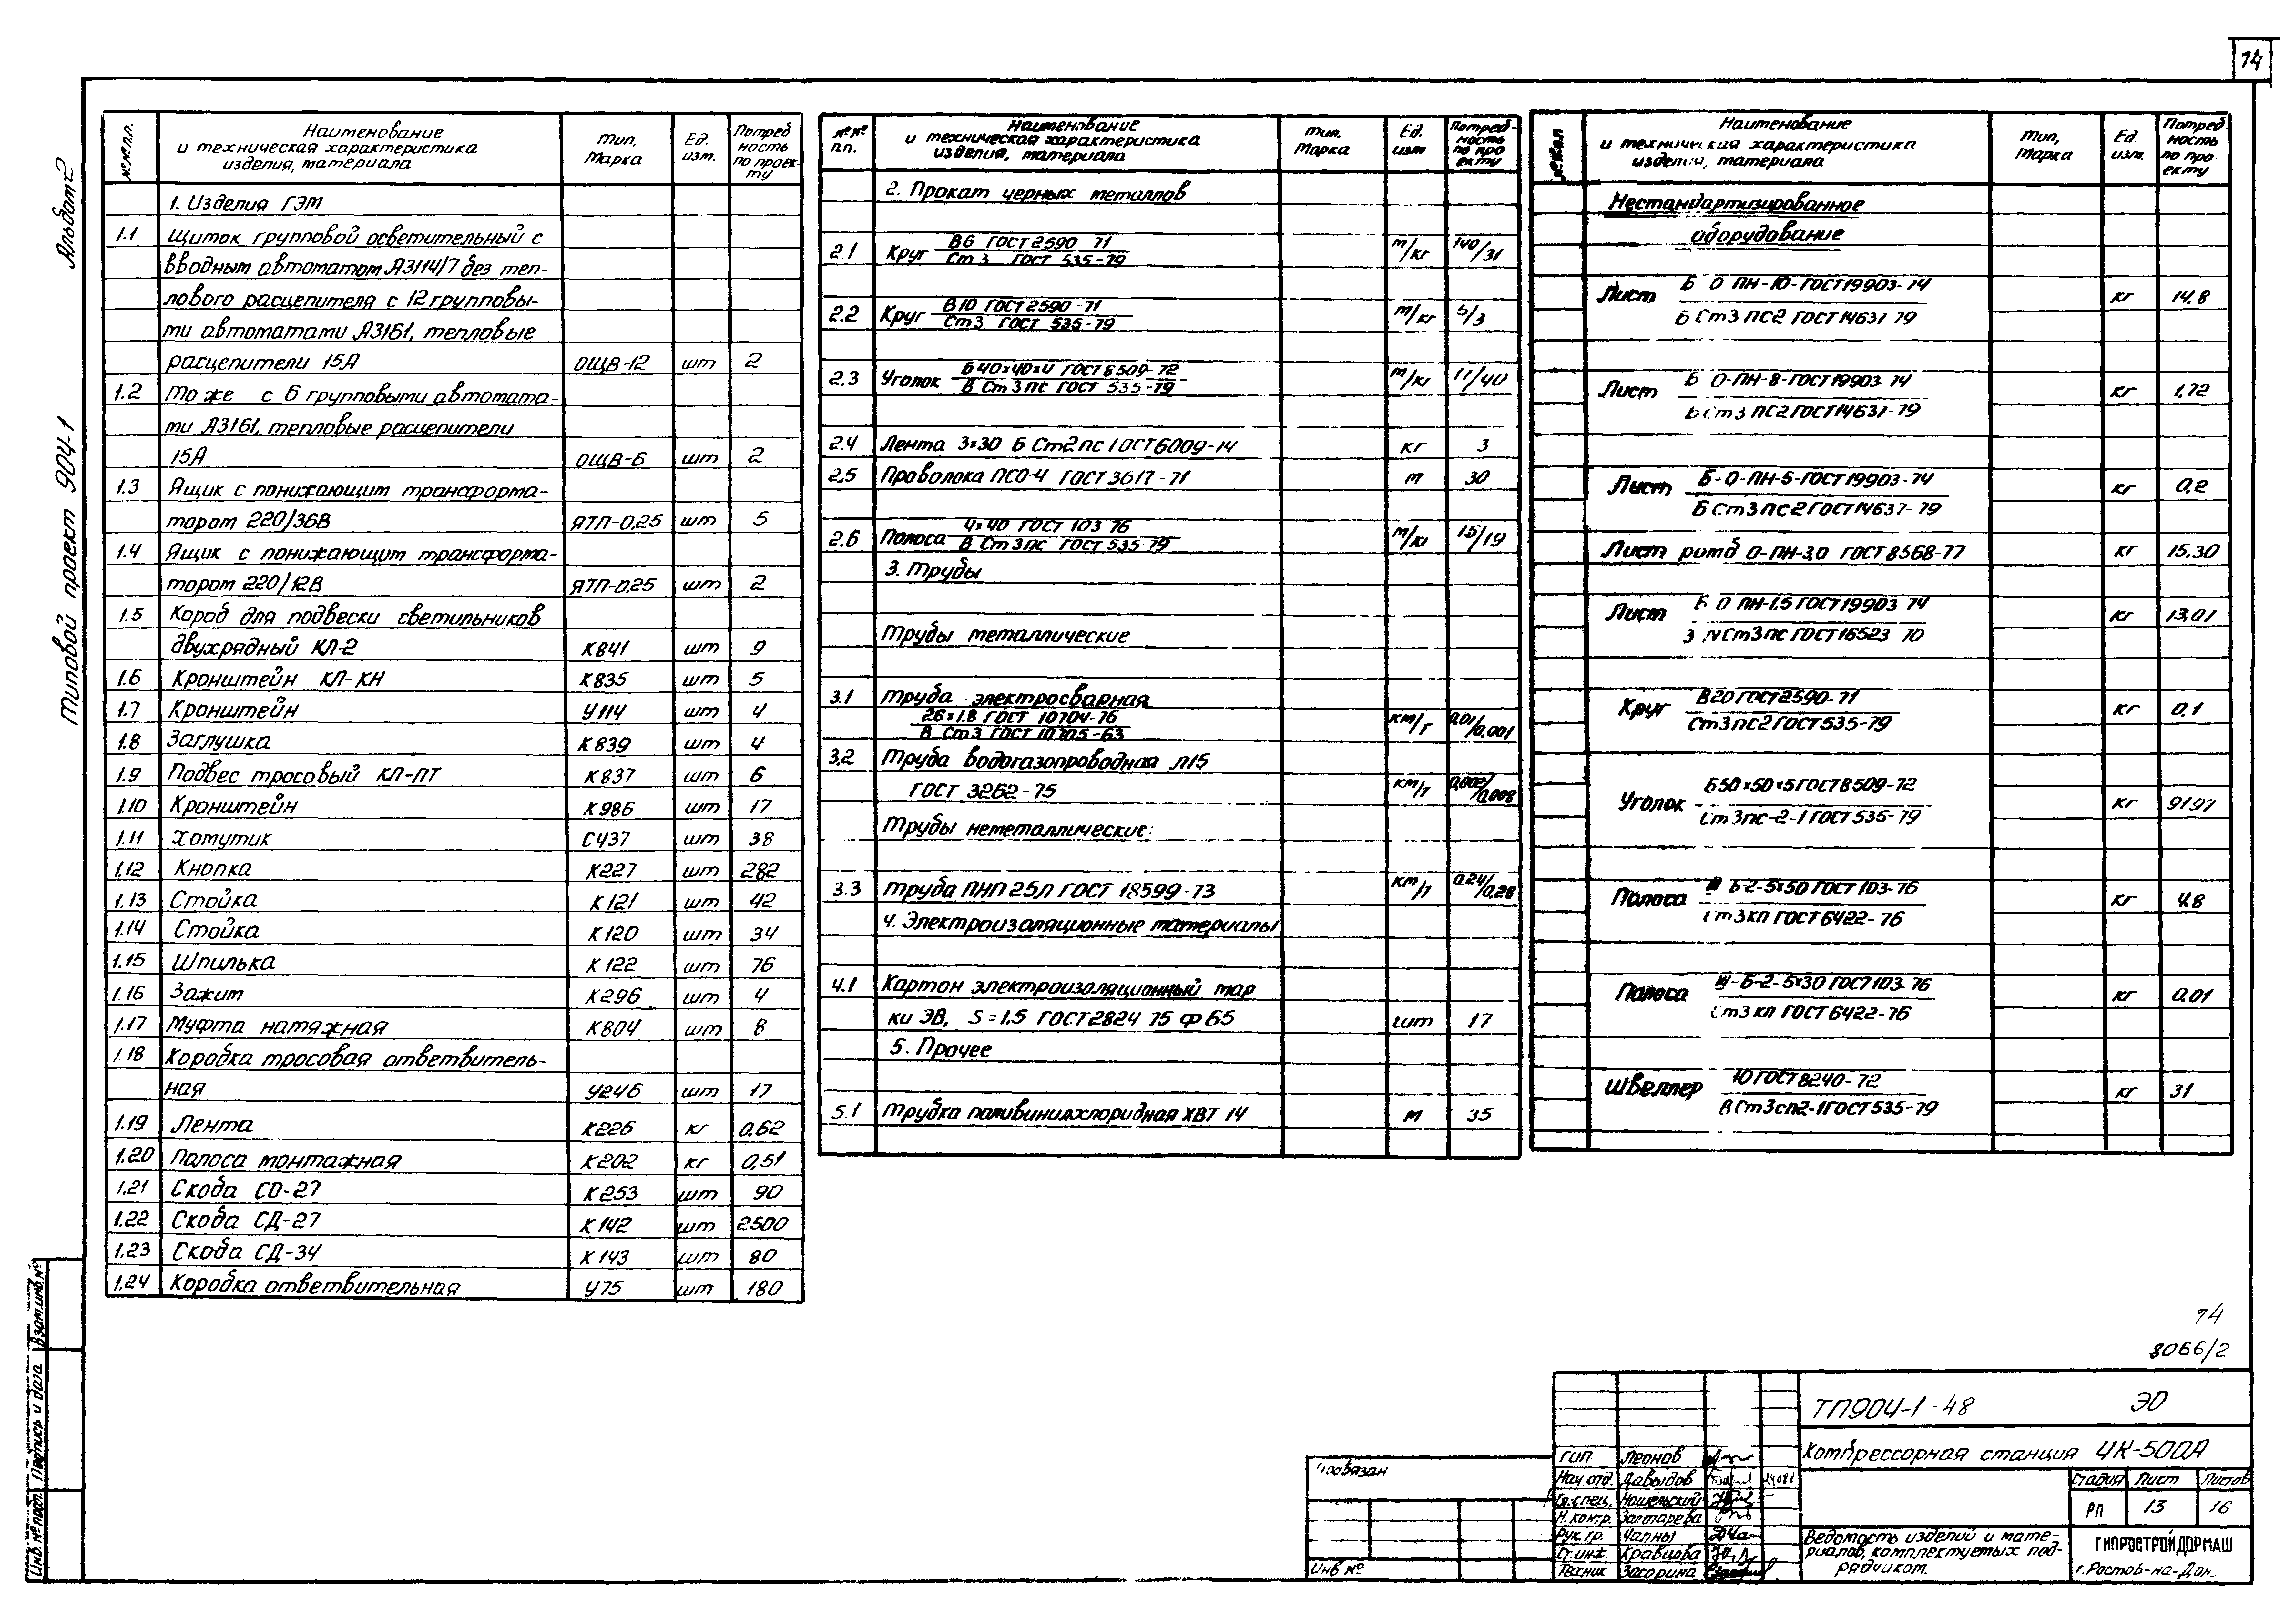 74
Альбом 2
Типовой проект 904-1
№№ п.п.
Наименование и техническая характеристика изделия, материала
Тип, Марка
Ед. изм.
Потребность по проекту
1. Изделия ГЭМ
1.1 Щиток групповой осветительный с
вводным автоматом А3114/7 без теп-
лового расцепителя с 12 групповы-
ми автоматами А3161, тепловые
расцепители 15А ОЩВ-12 шт 2
1.2 То же с 6 групповыми автомата-
ми А3161, тепловые расцепители
15А ОЩВ-6 шт 2
1.3 Ящик с понижающим трансформа-
тором 220/36В ЯТП-0,25 шт 5
1.4 Ящик с понижающим трансформа-
тором 220/12В ЯТП-0,25 шт 2
1.5 Короб для подвески светильников
двухрядный КЛ-2 К841 шт 9
1.6 Кронштейн КЛ-КН К835 шт 5
1.7 Кронштейн У114 шт 4
1.8 Заглушка К839 шт 4
1.9 Подвес тросовый КЛ-ПТ К837 шт 6
1.10 Кронштейн К986 шт 17
1.11 Хомутик С437 шт 38
1.12 Кнопка К227 шт 282
1.13 Стойка К121 шт 42
1.14 Стойка К120 шт 34
1.15 Шпилька К122 шт 76
1.16 Зажим К296 шт 4
1.17 Муфта натяжная К804 шт 8
1.18 Коробка тросовая ответвитель-
ная У246 шт 17
1.19 Лента К226 кг 0,62
1.20 Полоса монтажная К202 кг 0,51
1.21 Скоба СО-27 К253 шт 90
1.22 Скоба СД-27 К142 шт 2500
1.23 Скоба СД-34 К143 шт 80
1.24 Коробка ответвительная У75 шт 180
№№ п.п.
Наименование и техническая характеристика изделия, материала
Тип, Марка
Ед. изм
Потребность по проекту
2. Прокат черных металлов
2.1 Круг В6 ГОСТ 2590 71 м/кг 140/31
Ст 3 ГОСТ 535-79
2.2 Круг В10 ГОСТ 2590-71 м/кг 5/3
Ст3 ГОСТ 535-79
2.3 Уголок Б 40×40×4 ГОСТ 8509-72 м/кг 17/40
В Ст 3 пс ГОСТ 535-79
2.4 Лента 3×30 Б Ст2 пс ГОСТ 6009-74 кг 3
2.5 Проволока ПСО-4 ГОСТ 3617-71 м 30
2.6 Полоса 4×40 ГОСТ 103 76 м/кг 15/19
В Ст 3 пс ГОСТ 535-79
3. Трубы
Трубы металлические
3.1 Труба электросварная
26×1.8 ГОСТ 10704-76 км/т 0,01/0,001
В Ст3 ГОСТ 10705-63
3.2 Труба водогазопроводная Л15
ГОСТ 3262-75 км/т 0,002/0,008
Трубы неметаллические:
3.3 Труба ПНП 25Л ГОСТ 18599-73 км/т 0.24/0,28
4. Электроизоляционные материалы
4.1 Картон электроизоляционный мар
ки ЭВ, S = 1.5 ГОСТ 2824 75 Ф 65 шт 17
5. Прочее
5.1 Трубка поливинилхлоридная ХВТ 14 м 35
№№ п.п
Наименование и техническая характеристика изделия, материала
Тип, Марка
Ед. изм.
Потребность по проекту
Нестандартизированное
оборудование
Лист Б О ПН-10-ГОСТ 19903-74 кг 14,8
Б Ст3 ПС2 ГОСТ 14637 79
Лист Б О-ПН-8-ГОСТ 19903-74 кг 1,72
Б Ст3 ПС2 ГОСТ 14637-79
Лист Б-О-ПН-5-ГОСТ 19903-74 кг 0,2
Б Ст3 пс2 ГОСТ 14637-79
Лист ромб О-ПН-3,0 ГОСТ 8568-77 кг 15,30
Лист Б О ПН-1,5 ГОСТ 19903 74 кг 13,01
Ст3 пс ГОСТ 16523 70
Круг В20 ГОСТ 2590-71 кг 0,1
Ст3 пс2 ГОСТ 535-79
Уголок Б 50×50×5 ГОСТ 8509-72 кг 91,97
Ст 3пс-2-1 ГОСТ 535-79
Полоса Б-2-5×50 ГОСТ 103-76 кг 4,8
Ст 3 кп ГОСТ 6422-76
Полоса Ш-Б-2-5×30 ГОСТ 103-76 кг 0,01
Ст 3 кп ГОСТ 6422-76
Швеллер 10 ГОСТ 8240-72 кг 31
В Ст 3 сп2-1 ГОСТ 535-79
74
8066/2
ТП904-1-48 ЭО
Компрессорная станция ЧК-500А
Стадия Лист Листов
РП 13 16
Ведомость изделий и мате-
риалов, комплектуемых под-
рядчиком.
ГИПРОСТРОЙДОРМАШ
г. Ростов-на-Дон.
ГИП Леонов
Нач. отд. Давыдов
Гл. спец.
Н. контр. Золотарева
Рук. гр. Чапны
Ст. инж. Кравцова
Техник Засорина
Привязан
Инв №
Взам.инв.№
Подпись и дата
Инв.№ подл.